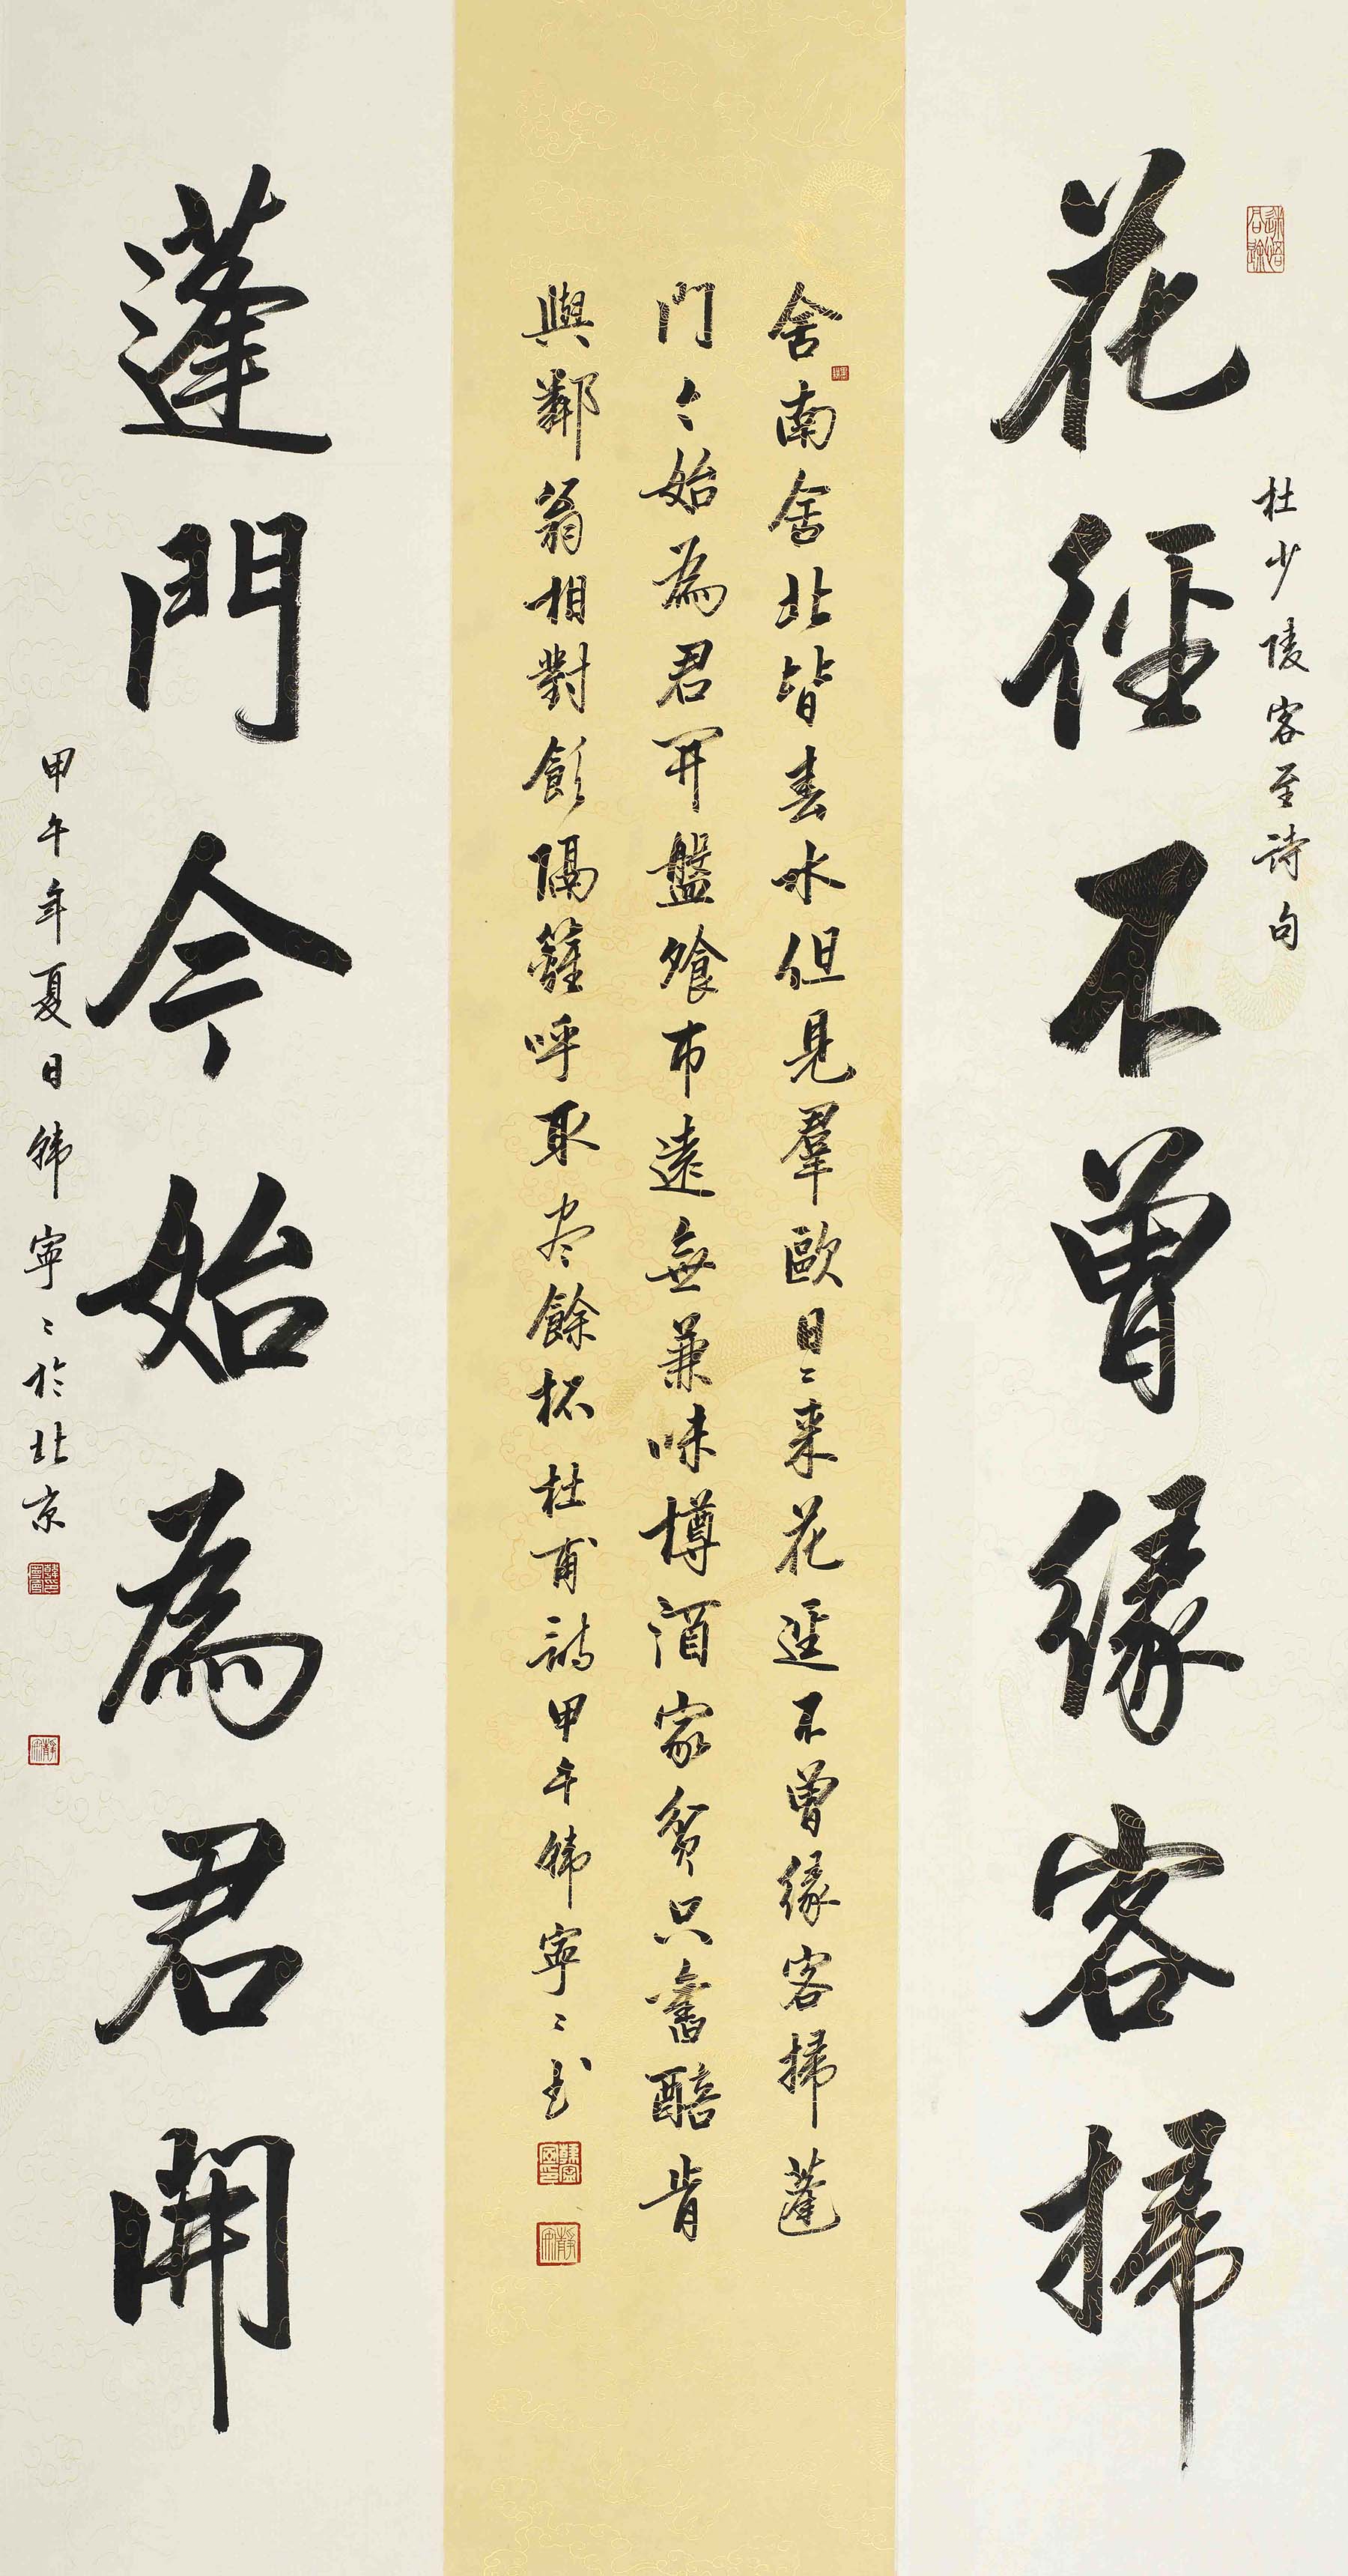 杜少陵客至詩句
花徑不曾緣客掃
舍南舍北皆春水但見羣歐日〻来花逕不曾緣客掃蓬
門今始為君開盤飧市遠無兼味樽酒家貧只舊醅肯
與鄰翁相對飲隔籬呼取尽餘杯杜甫詩甲午韩寧〻书
蓬門今始為君開
甲午年夏日韩寧〻於北京